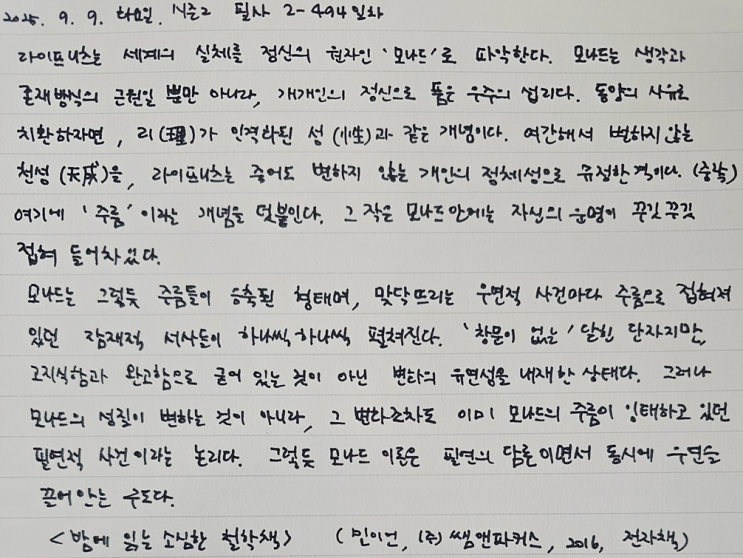 2025. 9. 9. 화요일. 시즌2 필사 2-494일차
라이프니츠는 세계의 실체를 정신의 원자인 '모나드'로 파악한다. 모나드는 생각과
존재방식의 근원일 뿐만 아니라, 개개인의 정신으로 품은 우주의 섭리다. 동양의 사유로
치환하자면, 리(理)가 인격화된 성(性)과 같은 개념이다. 여간해서 변하지 않는
천성(天成)을, 라이프니츠는 죽어도 변하지 않는 개인의 정체성으로 규정한 격이다. (중략)
여기에 '주름'이라는 개념을 덧붙인다. 그 작은 모나드 안에는 자신의 운명이 꾸깃꾸깃
접혀 들어차 있다.
모나드는 그렇듯 주름들이 응축된 형태며, 맞닥뜨리는 우연적 사건마다 주름으로 접혀져
있던 잠재적 서사들이 하나씩 하나씩 펼쳐진다. '창문이 없는' 닫힌 단자지만,
고지식함과 완고함으로 굳어 있는 것이 아닌 변화의 유연성을 내재한 상태다. 그러나
모나드의 성질이 변하는 것이 아니라, 그 변화조차도 이미 모나드의 주름이 잉태하고 있던
필연적 사건이라는 논리다. 그렇듯 모나드 이론은 필연의 담론이면서 동시에 우연을
끌어안는 구도다.
<밤에 읽는 소심한 철학책> (민이언, (주)쌤앤파커스, 2016, 전자책)